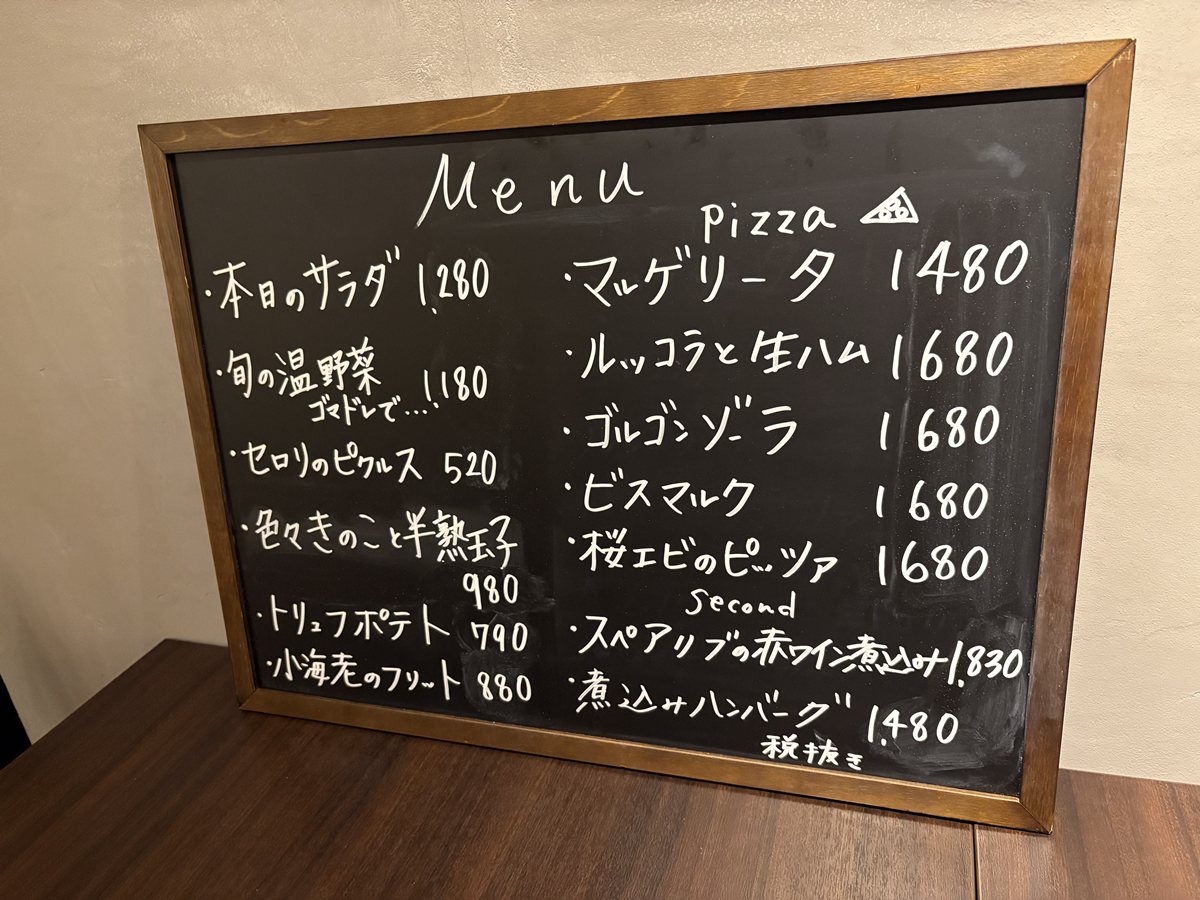 Menu
・本日のサラダ 1,280
・旬の温野菜
ゴマドレで…1,180
・セロリのピクルス 520
・色々きのこと半熟玉子
980
・トリュフポテト 790
・小海老のフリット 880
pizza
・マルゲリータ 1480
・ルッコラと生ハム 1680
・ゴルゴンゾーラ 1680
・ビスマルク 1680
・桜エビのピッツァ 1680
second
・スペアリブの赤ワイン煮込み 1,830
・煮込みハンバーグ 1,480
税抜き